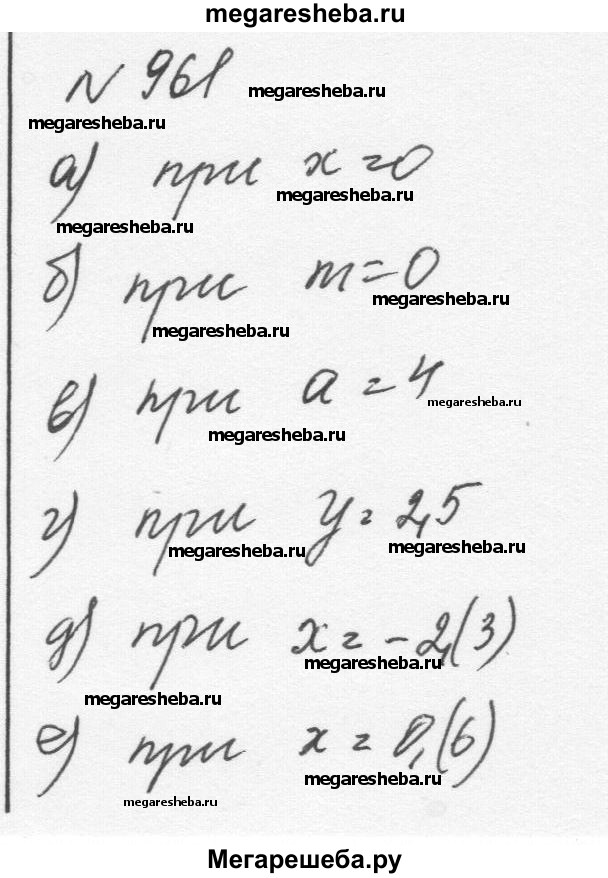 megaresheba.ru
N 961
megaresheba.ru
megaresheba.ru
а) при x = 0
megaresheba.ru
megaresheba.ru
б) при m = 0
megaresheba.ru
megaresheba.ru
в) при a = 4
megaresheba.ru
megaresheba.ru
г) при y = 2,5
megaresheba.ru
megaresheba.ru
д) при x = -2,(3)
megaresheba.ru
megaresheba.ru
е) при x = 0,(6)
megaresheba.ru
megaresheba.ru
Мегарешеба.ру